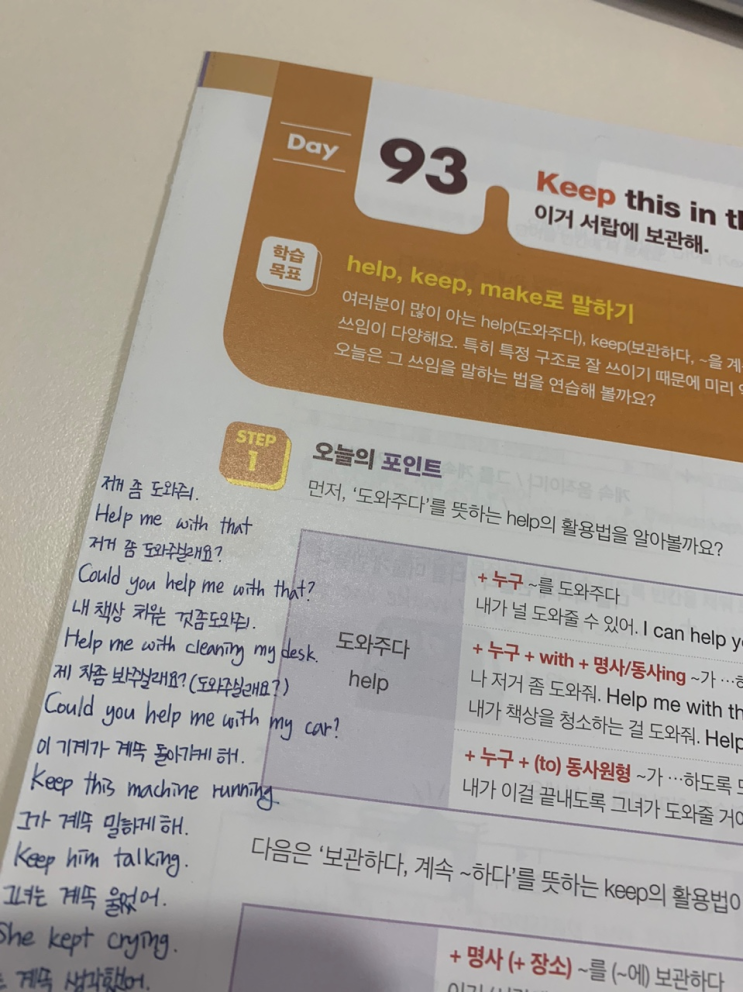 Day
93
Keep this in th
이거 서랍에 보관해.
학습
목표
help, keep, make로 말하기
여러분이 많이 아는 help(도와주다), keep(보관하다, ~을 계
쓰임이 다양해요. 특히 특정 구조로 잘 쓰이기 때문에 미리
오늘은 그 쓰임을 말하는 법을 연습해 볼까요?
STEP
1
오늘의 포인트
먼저, '도와주다'를 뜻하는 help의 활용법을 알아볼까요?
도와주다
help
+ 누구 ~를 도와주다
내가 널 도와줄 수 있어. I can help y
+ 누구 + with + 명사/동사ing ~가 …하
나 저거 좀 도와줘. Help me with th
내가 책상을 청소하는 걸 도와줘. Help
+ 누구 + (to) 동사원형 ~가 …하도록 도
내가 이걸 끝내도록 그녀가 도와줄 거
다음은 '보관하다, 계속 ~하다'를 뜻하는 keep의 활용법
+ 명사 (+ 장소) ~를 (~에) 보관하다
저거 좀 도와줘.
Help me with that
저거 좀 도와주실래요?
Could you help me with that?
내 책상 치우는 것좀도와줘.
Help me with cleaning my desk.
제 차좀 봐주실래요? (도와주실래요?)
Could you help me with my car?
이 기계가 계속 돌아가게 해.
Keep this machine running.
그가 계속 말하게 해.
Keep him talking.
그녀는 계속 울었어.
She kept crying.
는 계속 생각했어.